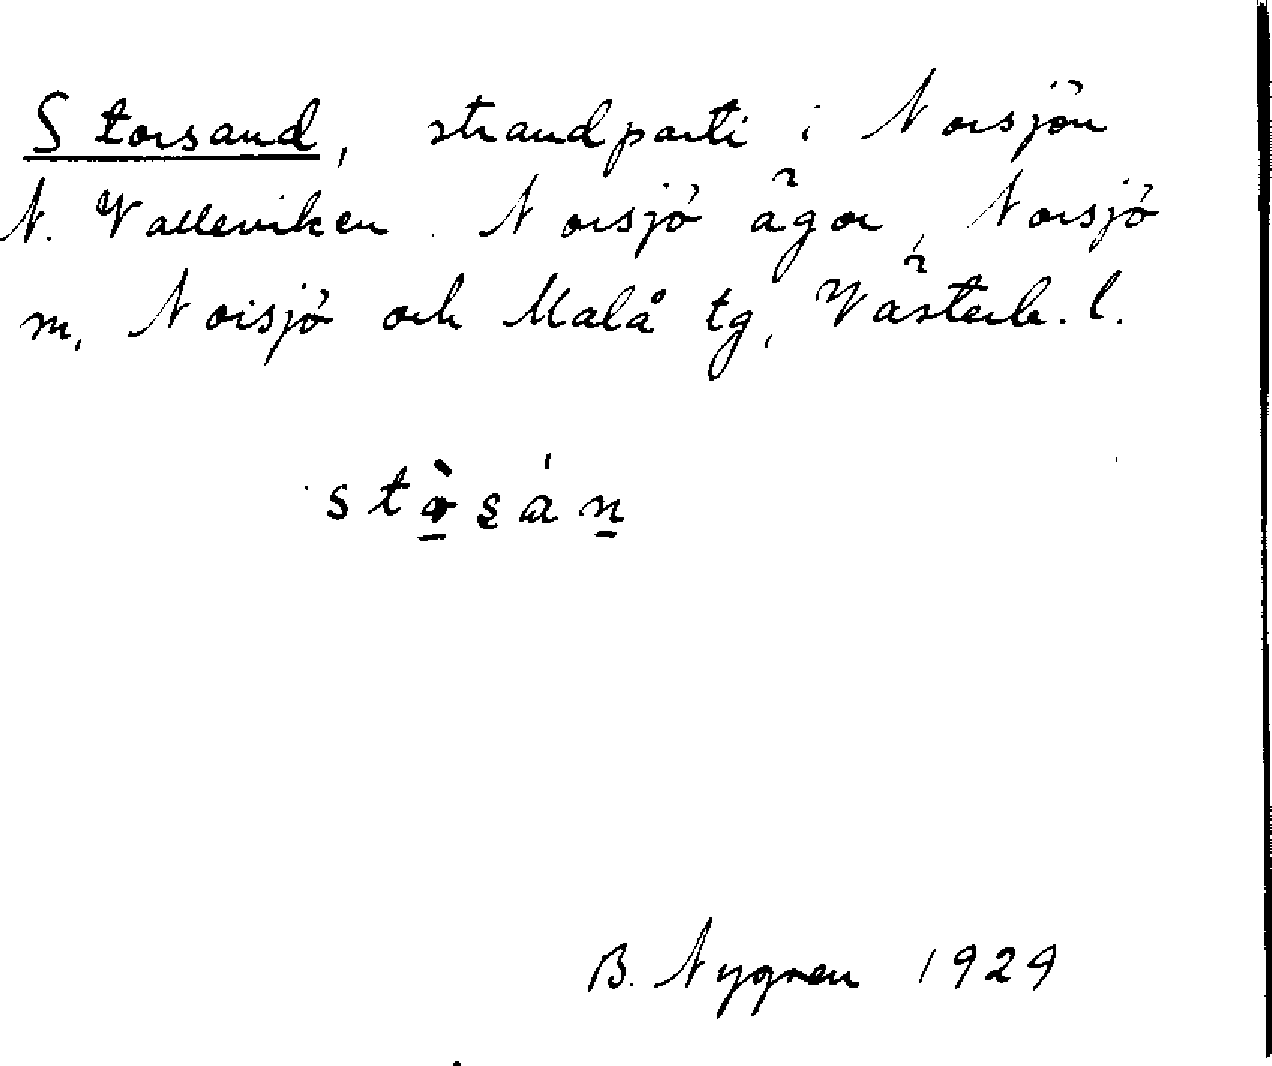 Storsand, strandparti i Norsjön
N. Valleviken. Norsjö ägor, Norsjö
m, Norsjö och Malå tg, Västerb. l.
stòsán
B. Nygren 1929